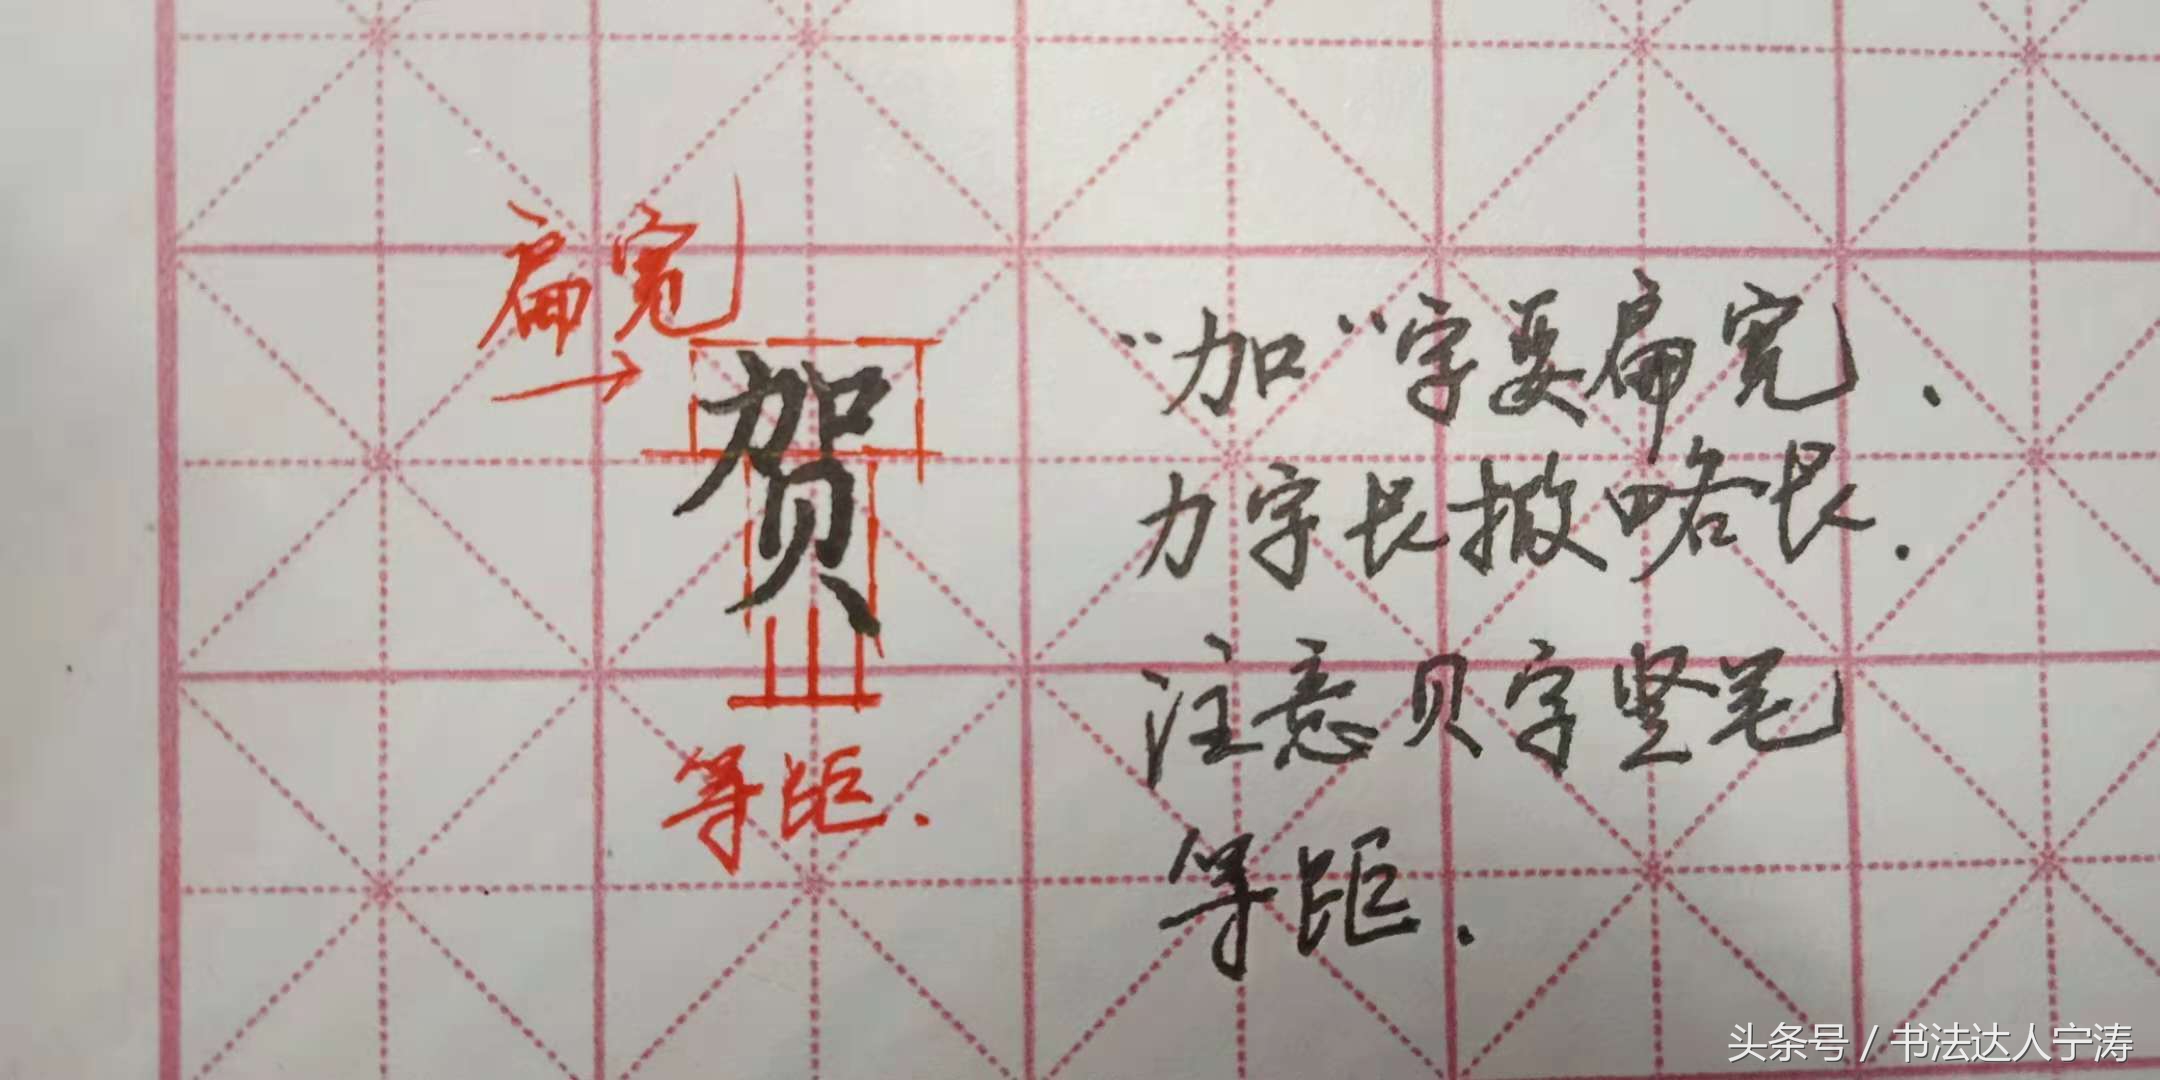 扁宽
贺
等距.
"加"字要扁宽.
力字长撇略长.
注意贝字竖笔
等距.
头条号 / 书法达人宁涛